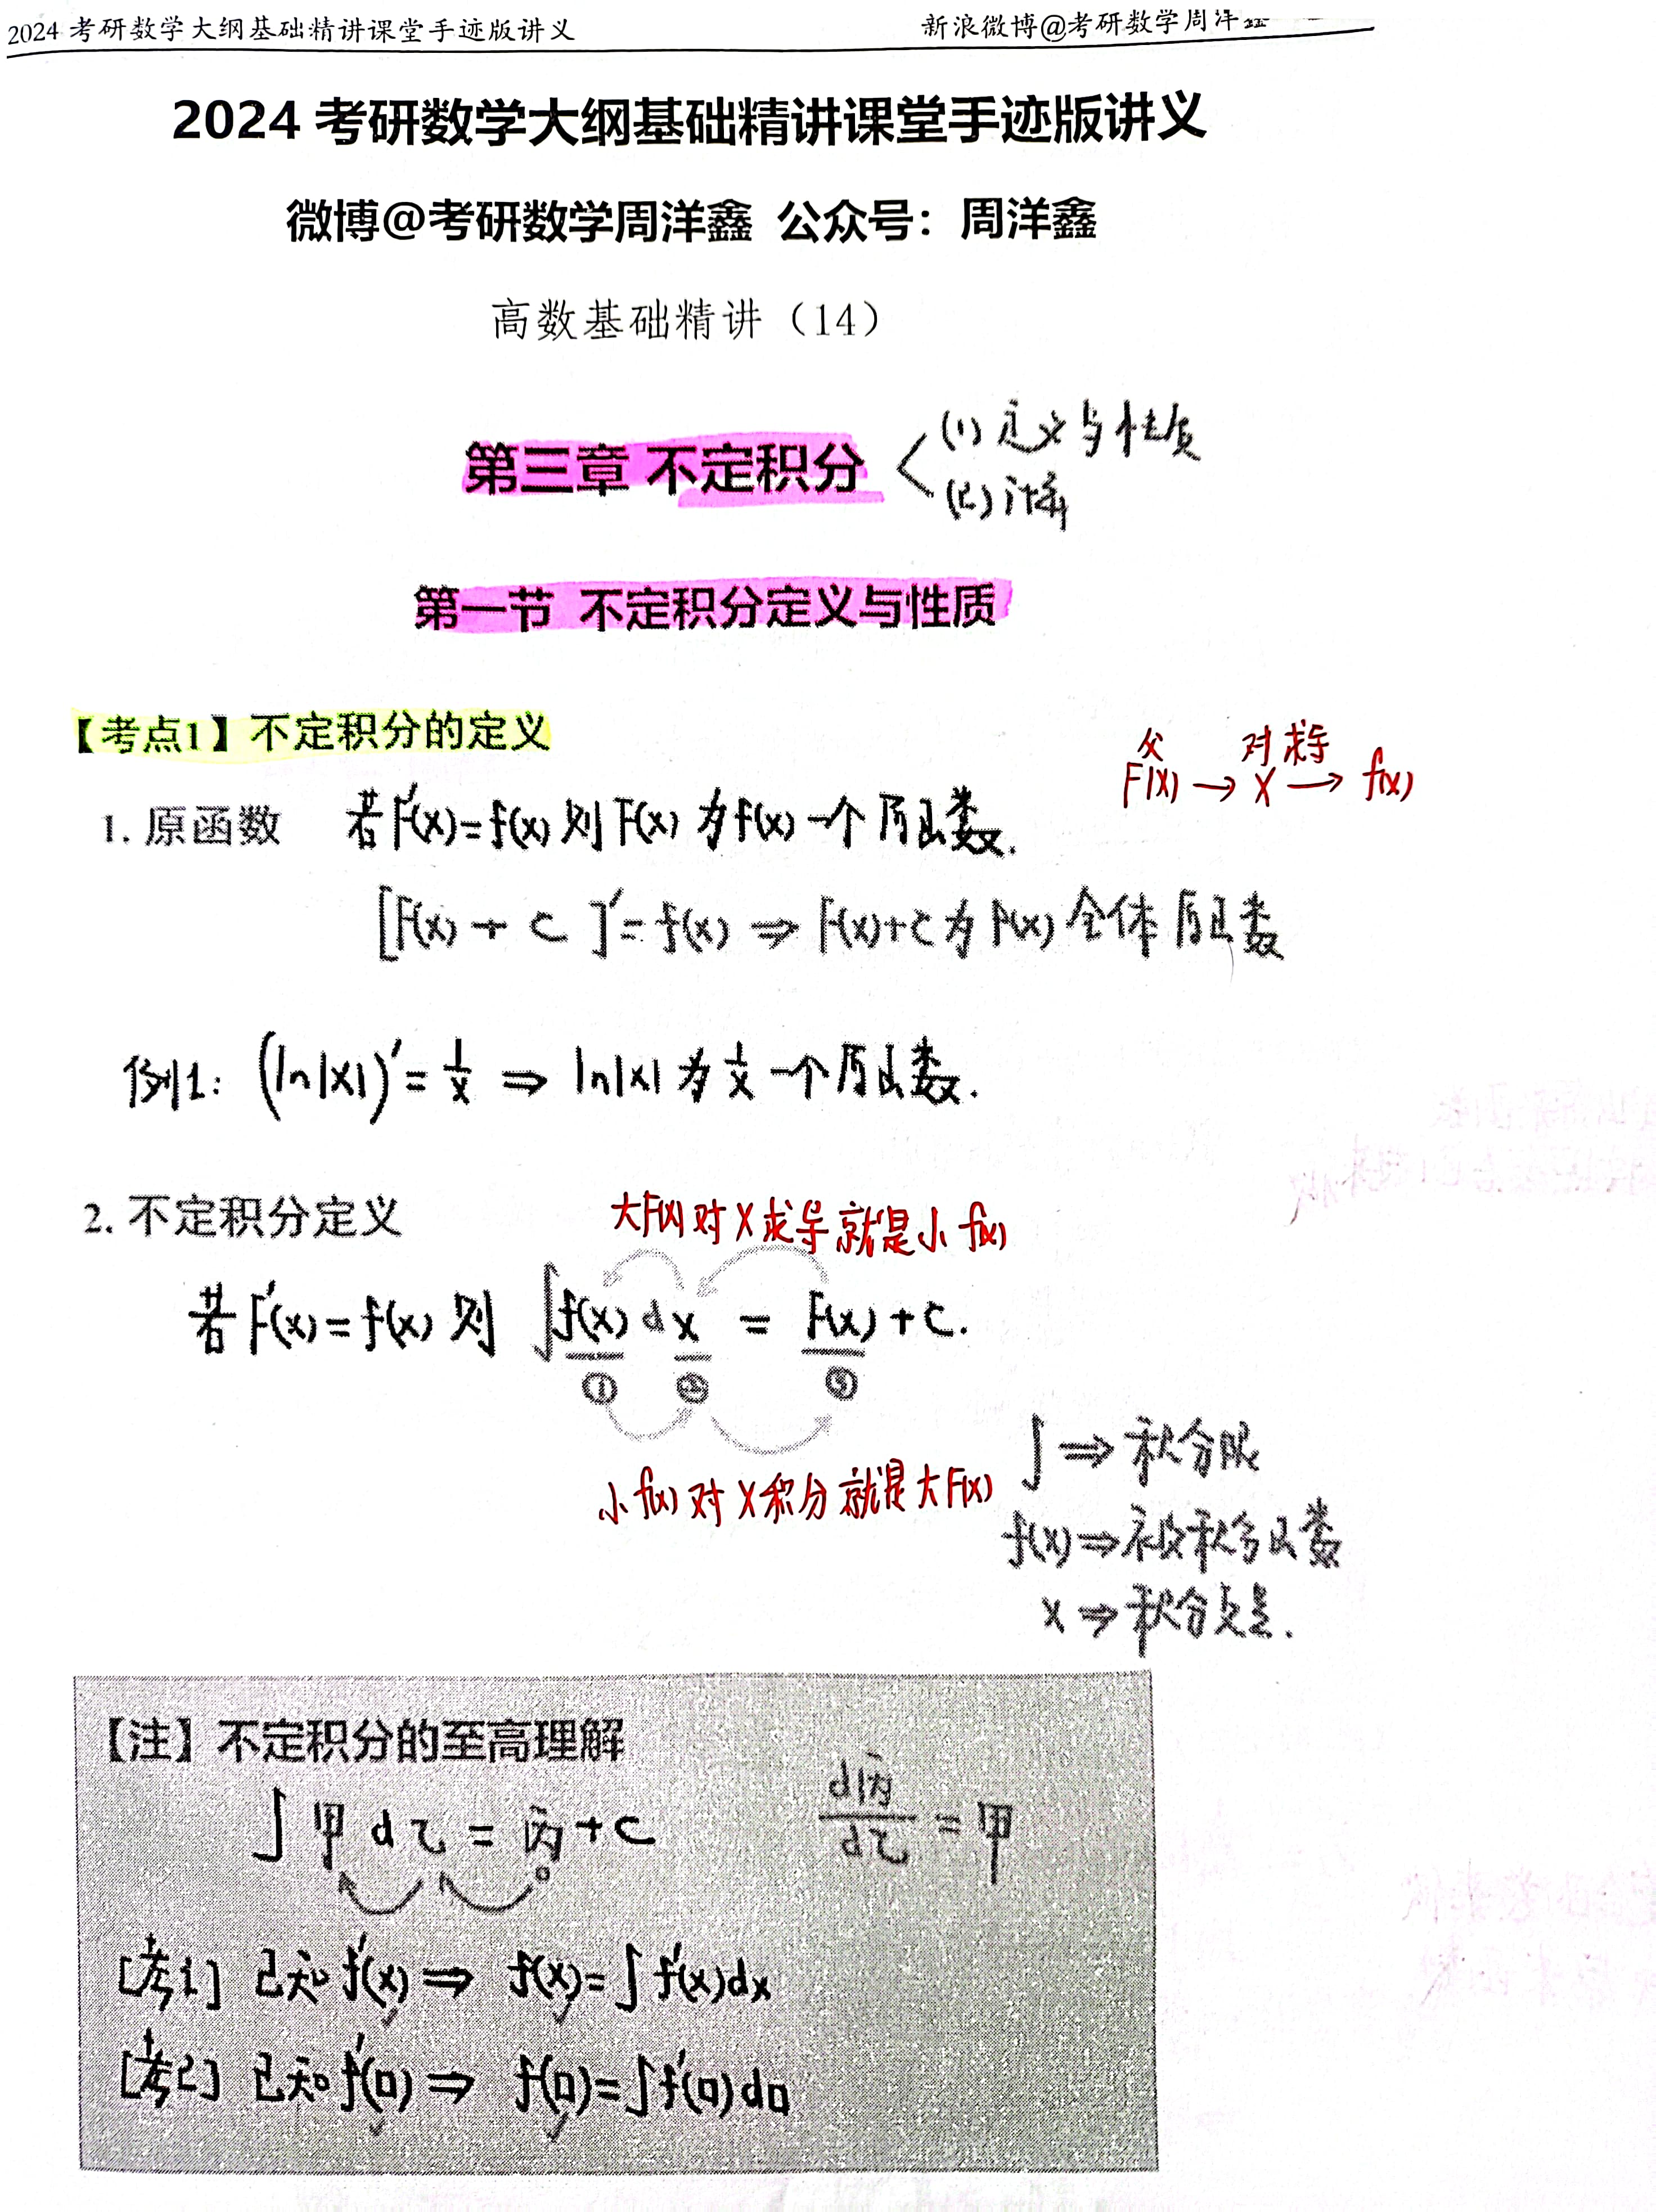 2024 考研数学大纲基础精讲课堂手迹版讲义
新浪微博@考研数学周洋鑫
2024 考研数学大纲基础精讲课堂手迹版讲义
微博@考研数学周洋鑫 公众号：周洋鑫
高数基础精讲（14）
第三章 不定积分
(1) 定义与性质
(2) 计算
第一节 不定积分定义与性质
【考点1】不定积分的定义
父 对 求导
F(x) → x → f(x)
1. 原函数 若F'(x)=f(x) 则 F(x) 为 f(x) 一个原函数.
[F(x) + C]' = f(x) ⇒ F(x)+C 为 f(x) 全体原函数
例1: (ln|x|)' = 1/x ⇒ ln|x| 为 1/x 一个原函数.
2. 不定积分定义
大F(x) 对 x 求导就是小 f(x)
若 F'(x) = f(x) 则 ∫f(x) dx = F(x) + C.
① ② ③
小 f(x) 对 x 积分就是大F(x)
∫ ⇒ 积分限
f(x) ⇒ 被积分函数
x ⇒ 积分变量.
【注】不定积分的至高理解
∫ 甲 d乙 = 丙 + C
d丙/d乙 = 甲
[考1] 已知 f'(x) ⇒ f(x) = ∫f'(x)dx
[考2] 已知 f'(□) ⇒ f(□) = ∫f'(□)d□